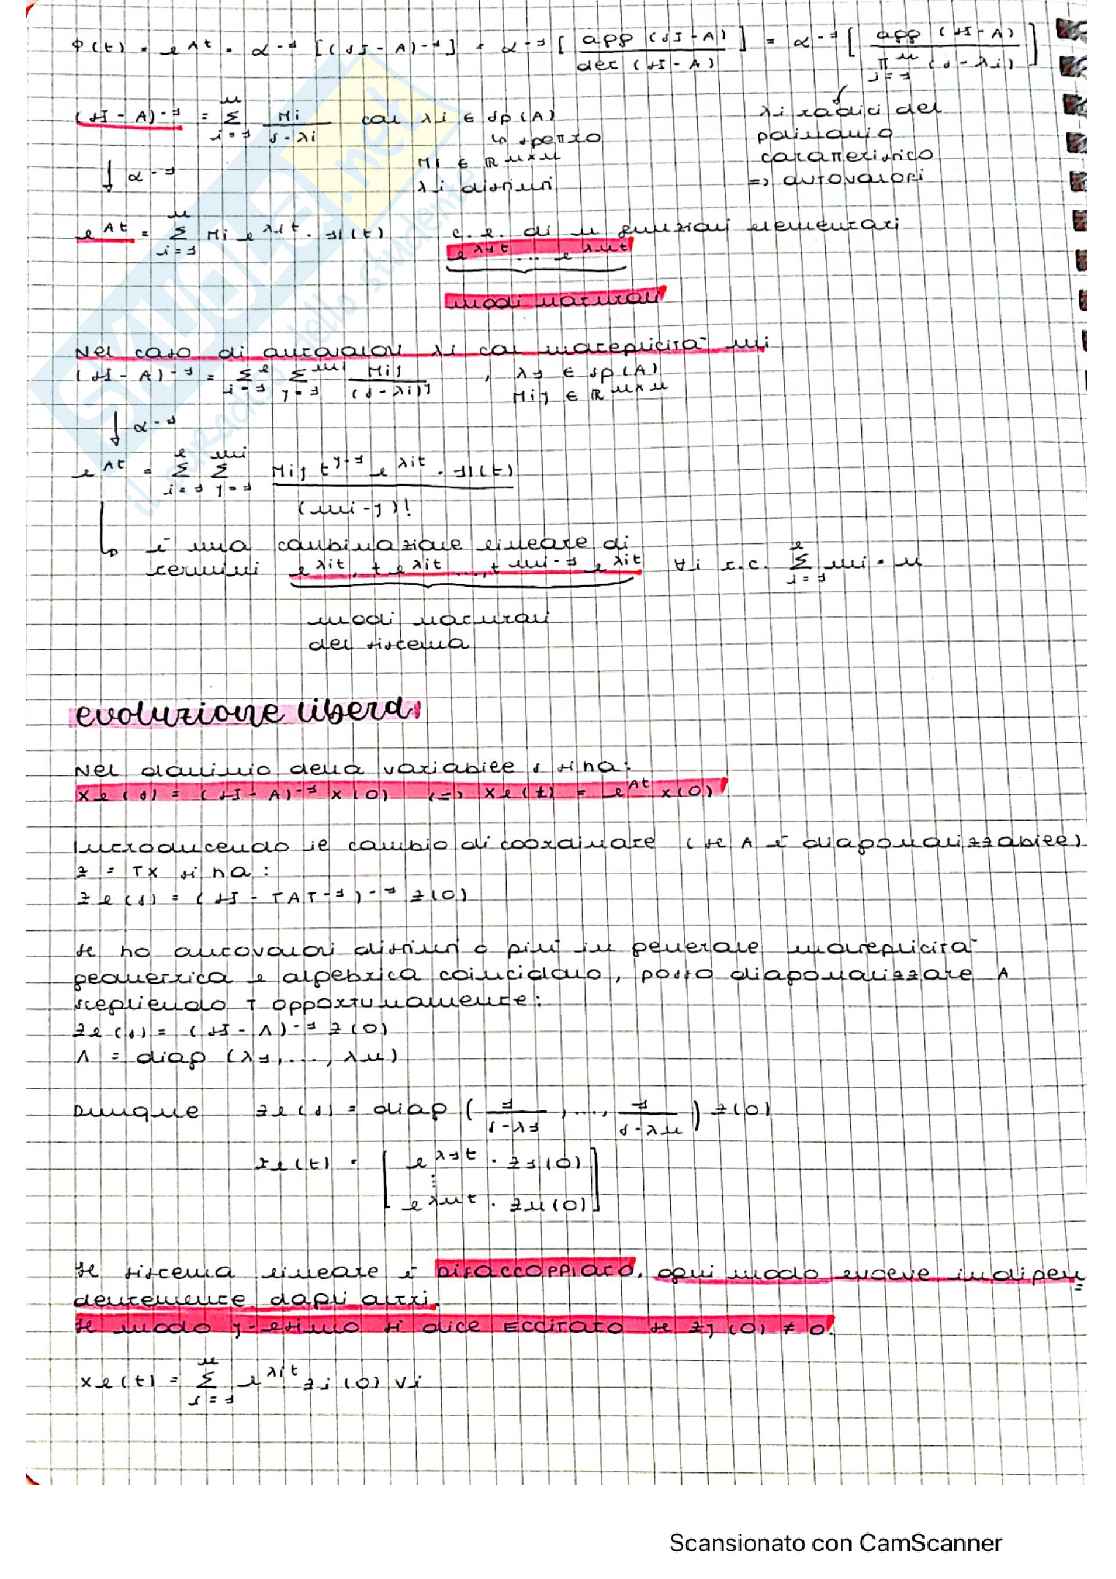 Φ(t) = e^At = α^-1 [(sI - A)^-1] = α^-1 [ agg (sI - A) / det (sI - A) ] = α^-1 [ agg (sI - A) / π^n_i=1 (s - λi) ]
(sI - A)^-1 = Σ^n_i=1 Mi / s - λi con λi ∈ sp(A)
↳ spettro
Mi ∈ R^n×n
λi distinti
λi radici del
polinomio
caratteristico
=> autovalori
↓ α^-1
e^At = Σ^n_i=1 Mi e^λit · 1(t) c.l. di n funzioni elementari
e^λ1t ... e^λnt
modi naturali
Nel caso di autovalori λi con molteplicità mi
(sI - A)^-1 = Σ^l_i=1 Σ^mi_j=1 Mij / (s - λi)^j , λj ∈ sp(A)
Mij ∈ R^n×n
↓ α^-1
e^At = Σ^l_i=1 Σ^mi_j=1 Mij t^j-1 e^λit · 1(t) / (mi-j)!
↳ è una combinazione lineare di
termini e^λit, t e^λit ..., t^mi-1 e^λit ∀i t.c. Σ^l_i=1 mi = n
modi naturali
del sistema
evoluzione libera
Nel dominio della variabile s si ha:
xl(s) = (sI - A)^-1 x(0) (=) xl(t) = e^At x(0)
Introducendo il cambio di coordinate (se A è diagonalizzabile)
z = Tx si ha:
zl(s) = (sI - TAT^-1)^-1 z(0)
se ho autovalori distinti o più in generale molteplicità
geometrica e algebrica coincidono, posso diagonalizzare A
scegliendo T opportunamente:
zl(s) = (sI - Λ)^-1 z(0)
Λ = diag (λ1, ..., λn)
Dunque zl(s) = diag ( 1 / s-λ1 , ..., 1 / s-λn ) z(0)
zl(t) = [ e^λ1t · z1(0)
⋮
e^λnt · zn(0) ]
Il sistema lineare è DISACCOPPIATO, ogni modo evolve indipen=
dentemente dagli altri.
Il modo j-esimo si dice ECCITATO se zj(0) ≠ 0.
xl(t) = Σ^n_i=1 e^λit zi(0) vi
SKUOLA.net
Scansionato con CamScanner